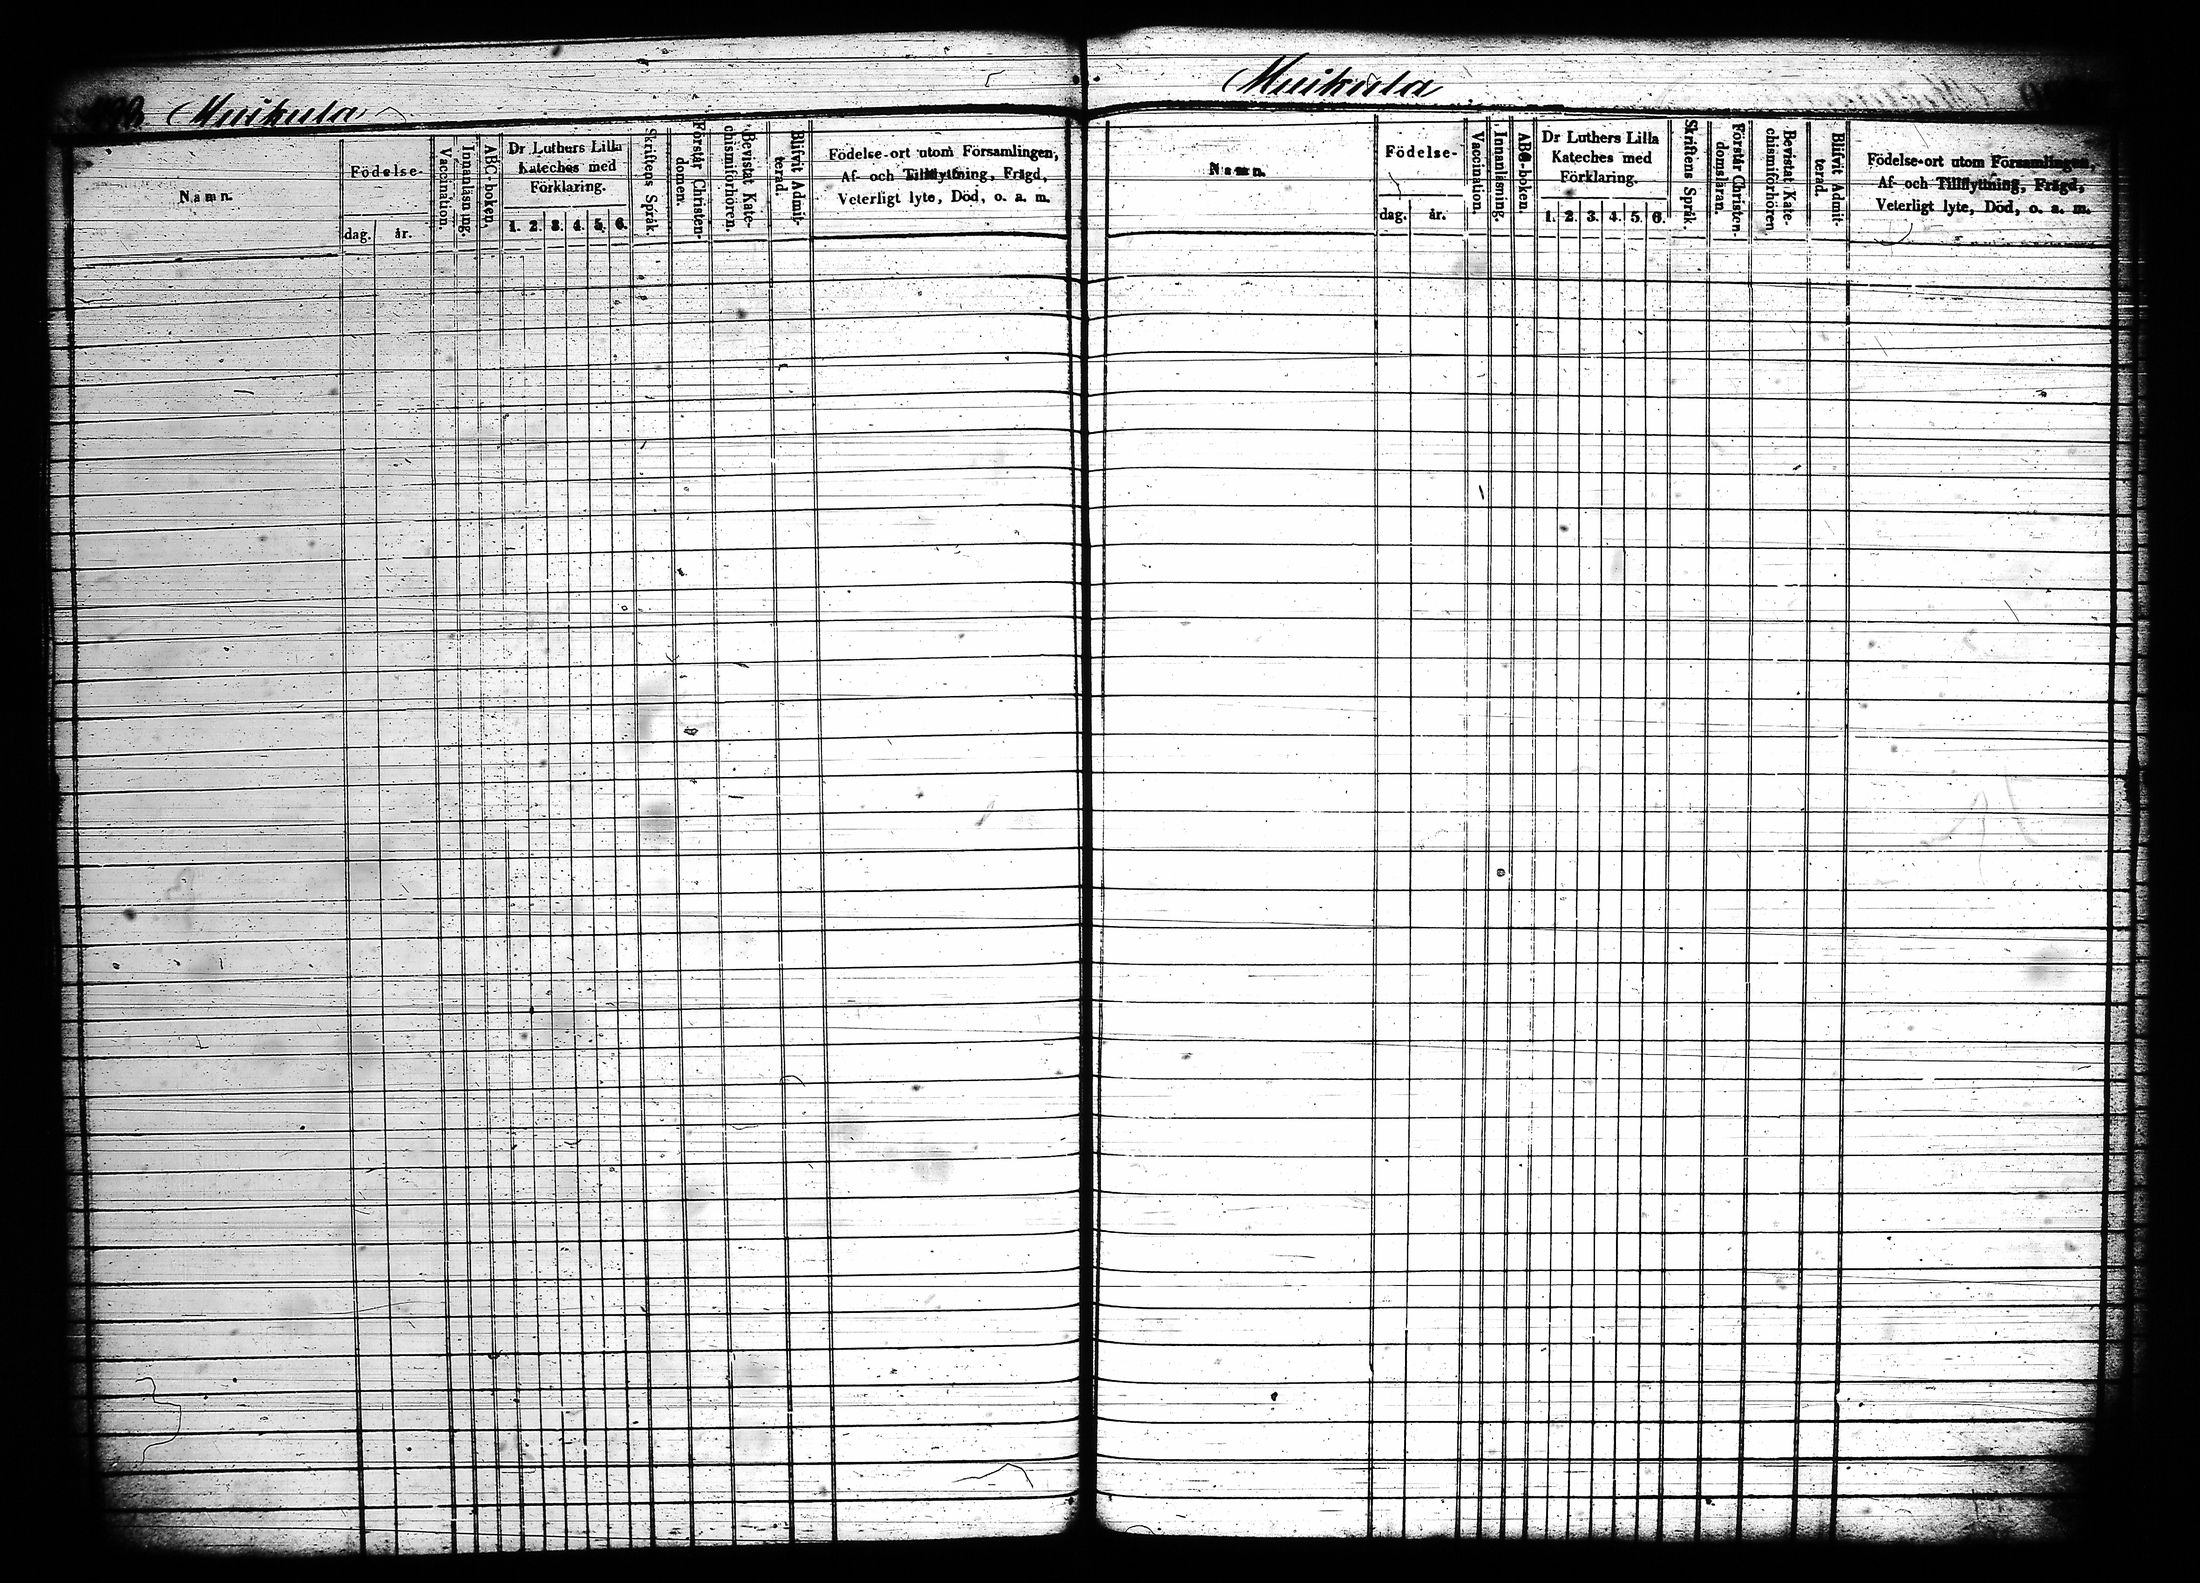 Muikula
Namn.
Födelse-
dag. år.
Vaccination.
Innanläsning.
ABC-boken.
Dr Luthers Lilla
Kateches med
Förklaring.
1. 2. 3. 4. 5. 6.
Skriftens Språk.
Förstår Christen-
domen.
Bevistat Kate-
chismiförhören.
Blifvit Admit-
terad.
Födelse-ort utom Församlingen,
Af- och Tillflyttning, Frägd,
Veterligt lyte, Död, o. s. m.
Muikula
Namn.
Födelse-
dag. år.
Vaccination.
Innanläsning.
ABC-boken.
Dr Luthers Lilla
Kateches med
Förklaring.
1. 2. 3. 4. 5. 6.
Skriftens Språk.
Förstår Christen-
domsläran.
Bevistat Kate-
chismiförhören
Blifvit Admit-
terad.
Födelse-ort utom Församlingen,
Af- och Tillflyttning, Frägd,
Veterligt lyte, Död, o. s. m.